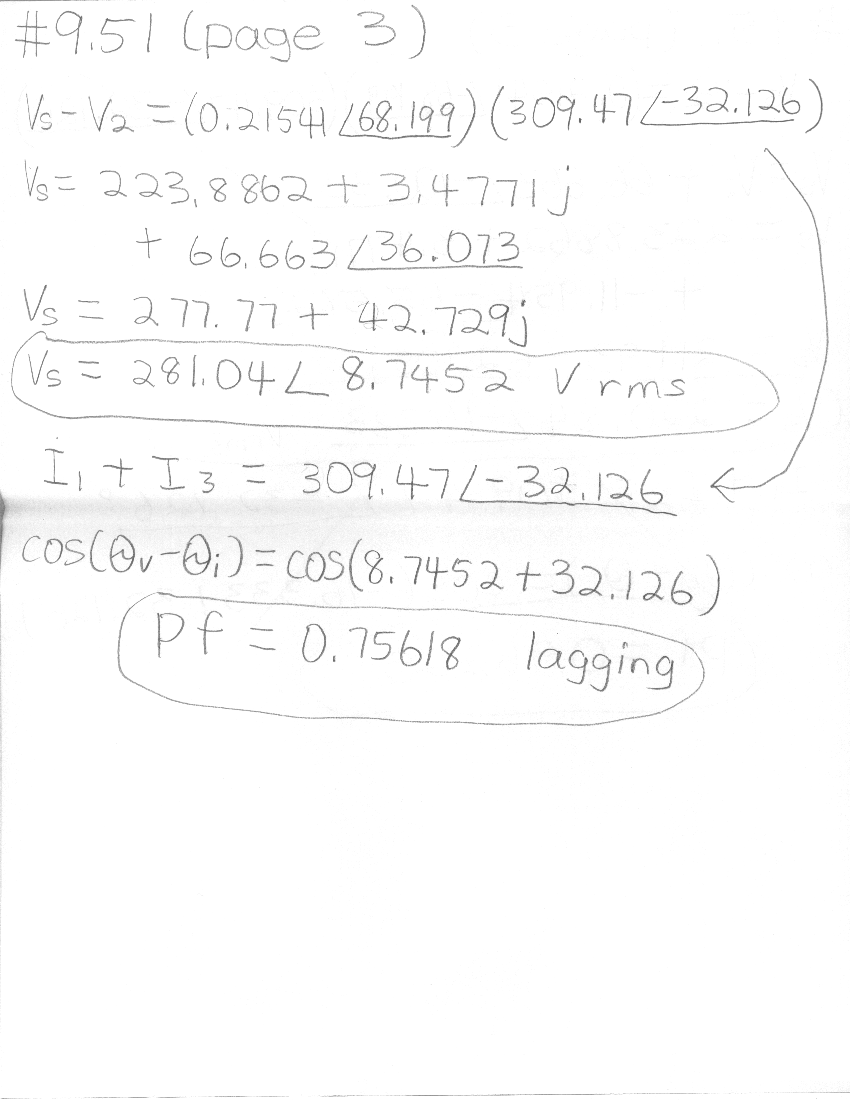 #9.51 (page 3)
Vs - V2 = (0.21541 ∠68.199) (309.47 ∠-32.126)
Vs = 223.8862 + 3.4771j
+ 66.663 ∠36.073
Vs = 277.77 + 42.729j
Vs = 281.04 ∠ 8.7452 V rms
I1 + I3 = 309.47 ∠-32.126 ←
cos(θv - θi) = cos(8.7452 + 32.126)
Pf = 0.75618 lagging